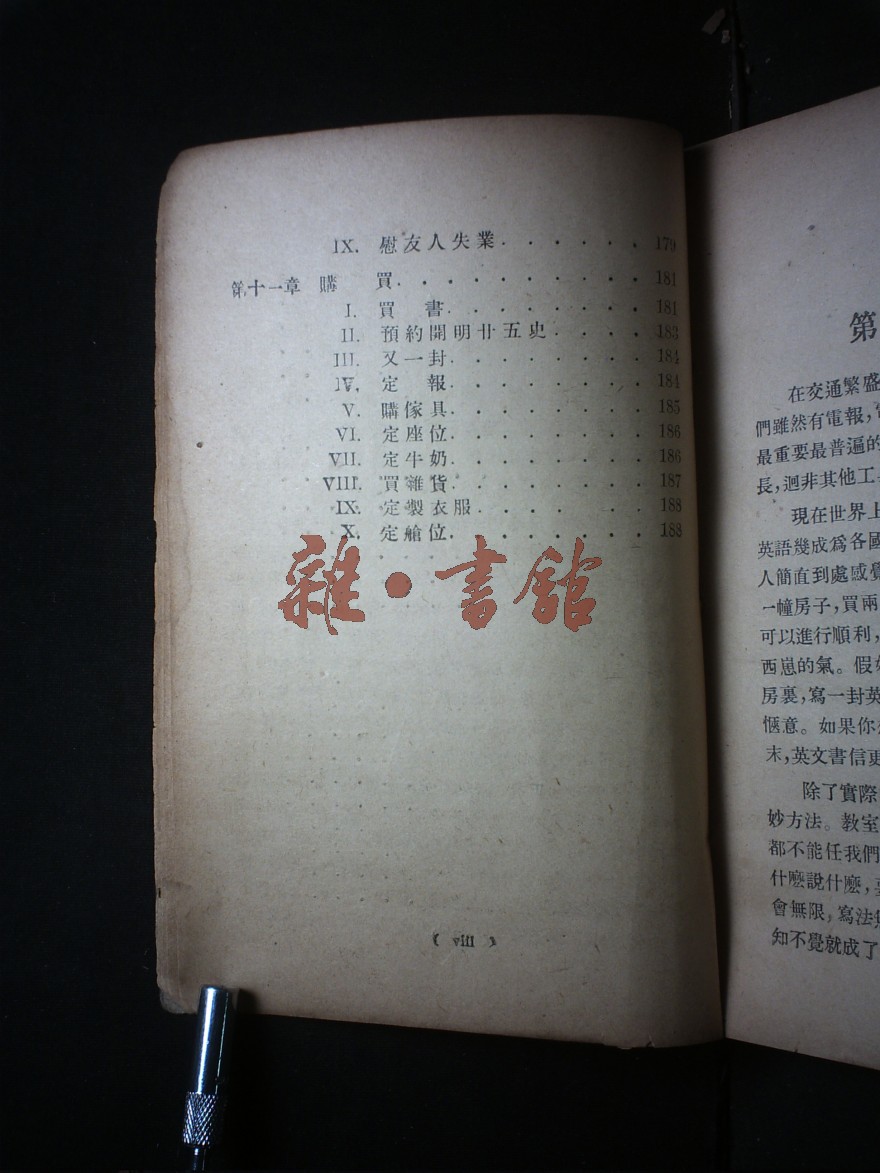 IX. 慰友人失業. . . . . . 179
第十一章 購 買. . . . . . . . . 181
I. 買 書. . . . . . . . 181
II. 預約開明廿五史. . . . 183
III. 又一封. . . . . . . . 184
IV. 定 報. . . . . . . . 184
V. 購傢具. . . . . . . . 185
VI. 定座位. . . . . . . . 186
VII. 定牛奶. . . . . . . . 186
VIII. 買雜貨. . . . . . . . 187
IX. 定製衣服. . . . . . . 188
X. 定艙位. . . . . . . . 188
雜·書館
( viii )
第
在交通繁盛
們雖然有電報,
最重要最普遍的
長,迥非其他工
現在世界上
英語幾成爲各國
人簡直到處感覺
一幢房子,買兩
可以進行順利,
西崽的氣。假如
房裏,寫一封英
愜意。如果你
末,英文書信更
除了實際
妙方法。教室
都不能任我們
什麽說什麽,
會無限,寫法
知不覺就成了